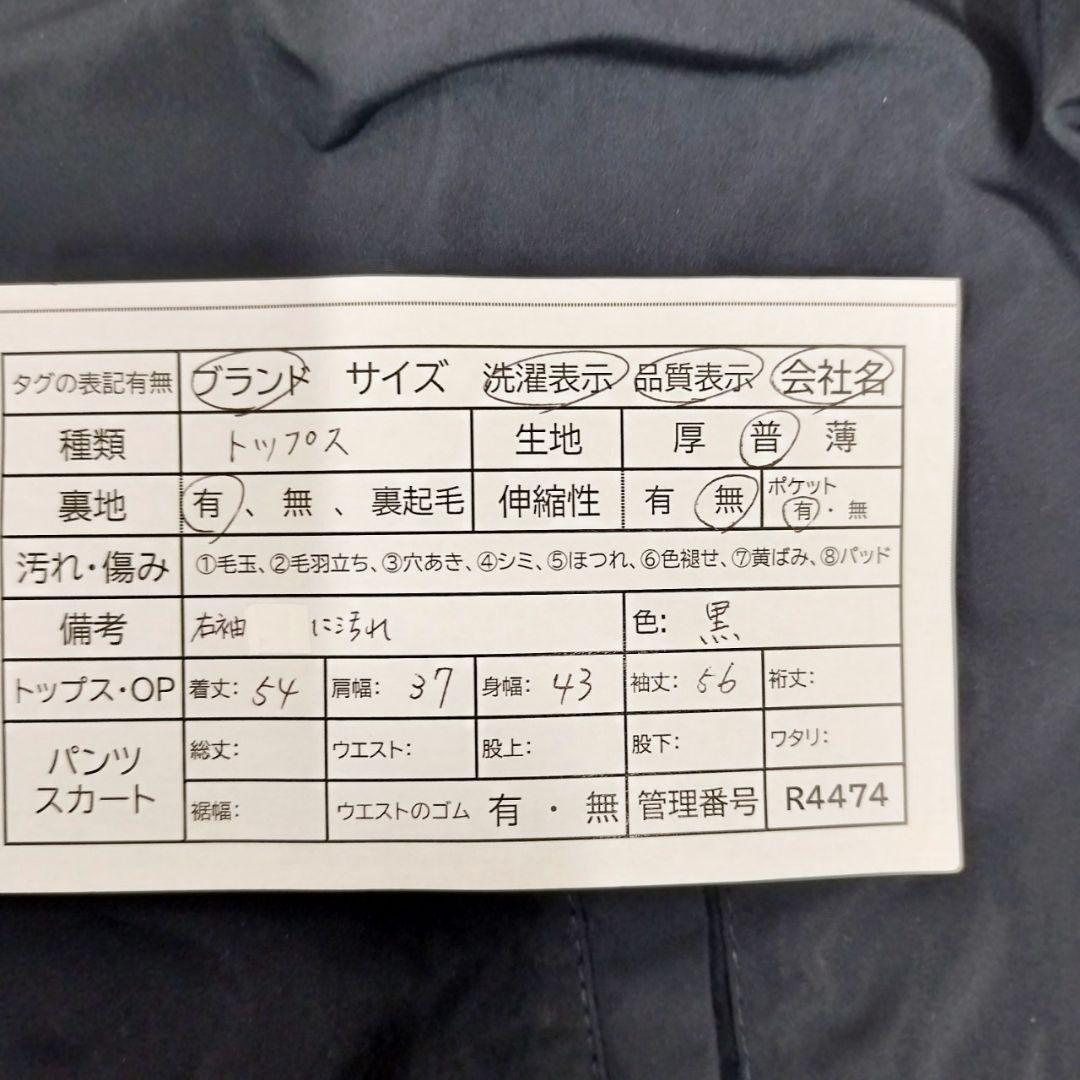 タグの表記有無 ブランド サイズ 洗濯表示 品質表示 会社名
種類 トップス 生地 厚 普 薄
裏地 有、無、裏起毛 伸縮性 有 無 ポケット 有・無
汚れ・傷み ①毛玉、②毛羽立ち、③穴あき、④シミ、⑤ほつれ、⑥色褪せ、⑦黄ばみ、⑧パッド
備考 右袖 に汚れ 色: 黒
トップス・OP 着丈: 54 肩幅: 37 身幅: 43 袖丈: 56 裄丈:
パンツ スカート 総丈: ウエスト: 股上: 股下: ワタリ:
裾幅: ウエストのゴム 有・無 管理番号 R4474